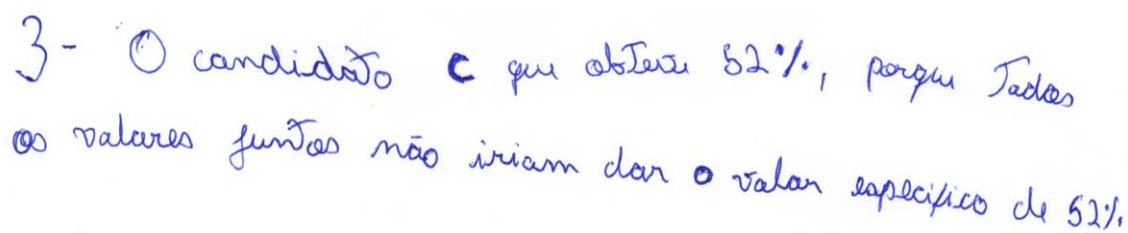 3- O candidato C que obteve 52%, porque Todos
os valores juntos não iriam dar o valor especifico de 52%